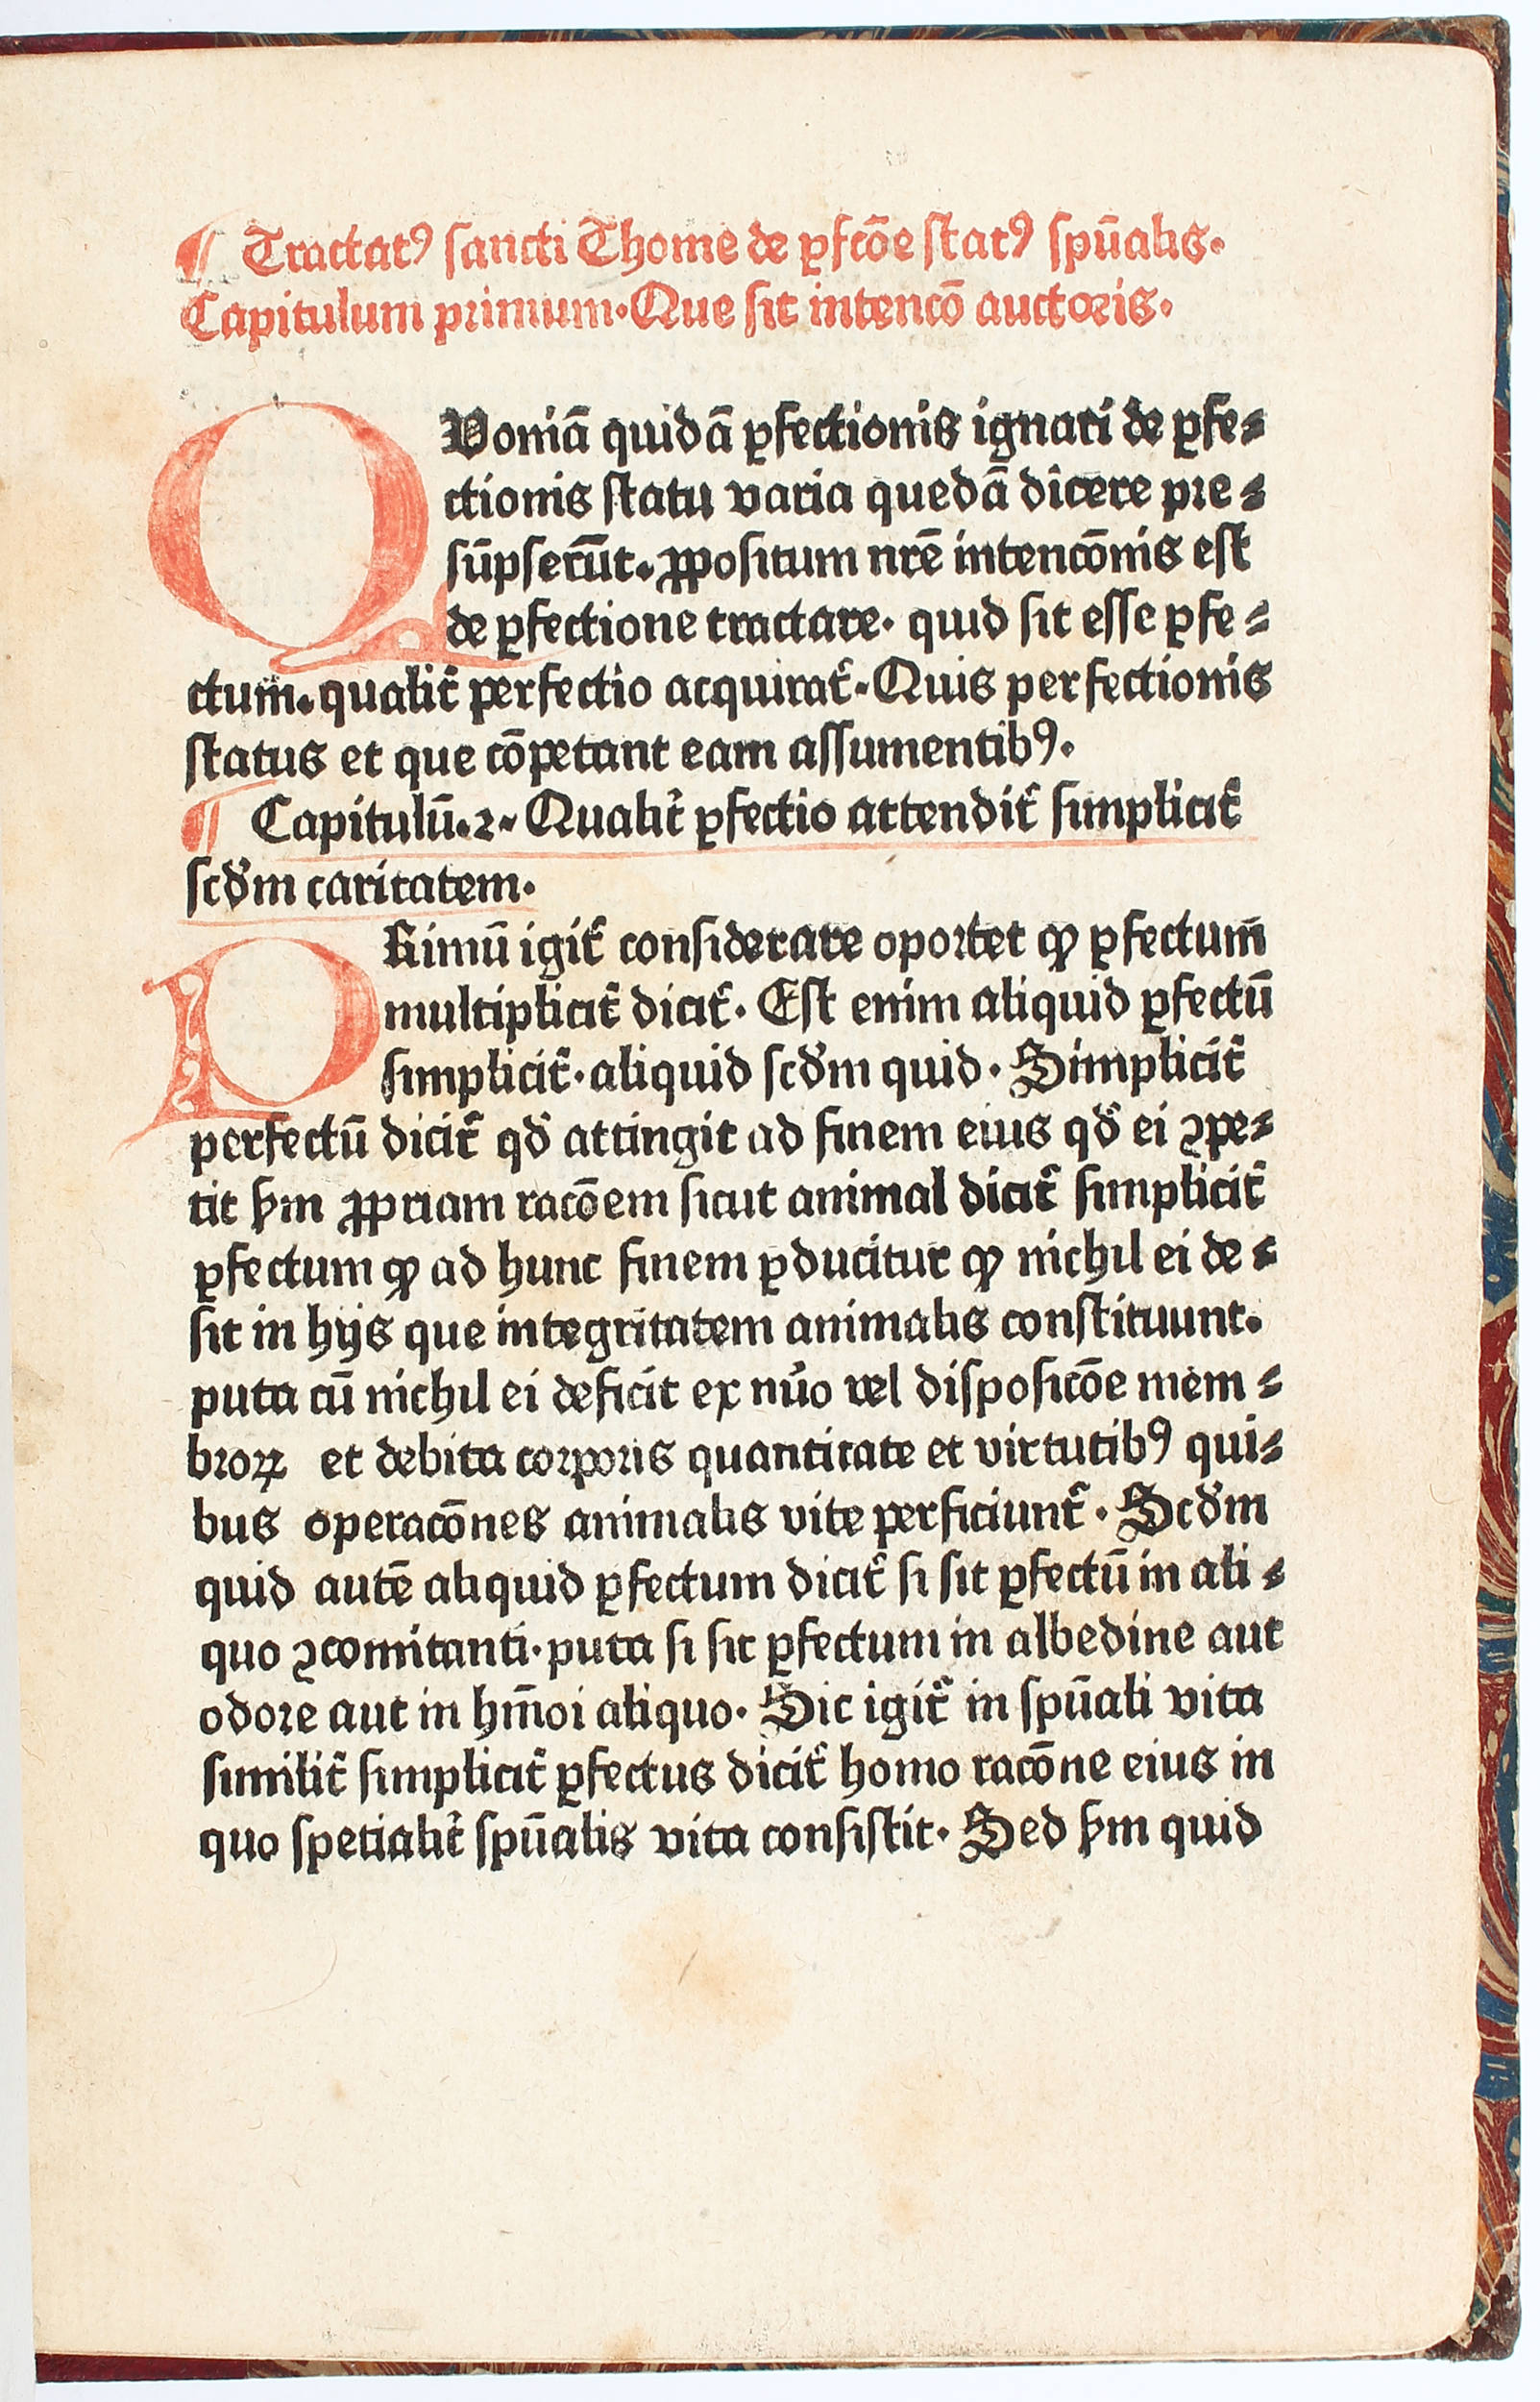 ¶ Tractatꝰ sancti Thome de ꝑfcōe statꝰ spūalis.
Capitulum primum. Que sit intencō auctoris.
QVoniā quidā ꝑfectionis ignari de ꝑfe-
ctionis statu varia quedā dicere pre-
sūpserūt. ꝓpositum nrē intencōnis est
de ꝑfectione tractare. quid sit esse ꝑfe-
ctum. qualit᷑ perfectio acquirat᷑. Quis perfectionis
status et que cōpetant eam assumentibꝰ.
¶ Capitulū. 2. Qualit᷑ ꝑfectio attendit᷑ simplicit᷑
scd̓m caritatem.
PRimū igit᷑ considerare oportet ꝙ ꝑfectum
multiplicit᷑ dicit᷑. Est enim aliquid ꝑfectū
simplicit᷑. aliquid scd̓m quid. Simplicit᷑
perfectū dicit᷑ qd̓ attingit ad finem eius qd̓ ei ꝯpe-
tit ẜm ꝓpriam racōem sicut animal dicit᷑ simplicit᷑
ꝑfectum ꝙ ad hunc finem ꝑducitur ꝙ nichil ei de-
sit in hijs que integritatem animalis constituunt.
puta cū nichil ei deficit ex nūo vel disposicōe mem-
broꝝ et debita corporis quantitate et virtutibꝰ qui-
bus operacōnes animalis vite perficiunt᷑. Scd̓m
quid autē aliquid ꝑfectum dicit᷑ si sit ꝑfectū in ali-
quo ꝯcomitanti. puta si sit ꝑfectum in albedine aut
odore aut in hm̄oi aliquo. Sic igit᷑ in spūali vita
similit᷑ simplicit᷑ ꝑfectus dicit᷑ homo racōne eius in
quo spetialit᷑ spūalis vita consistit. Sed ẜm quid